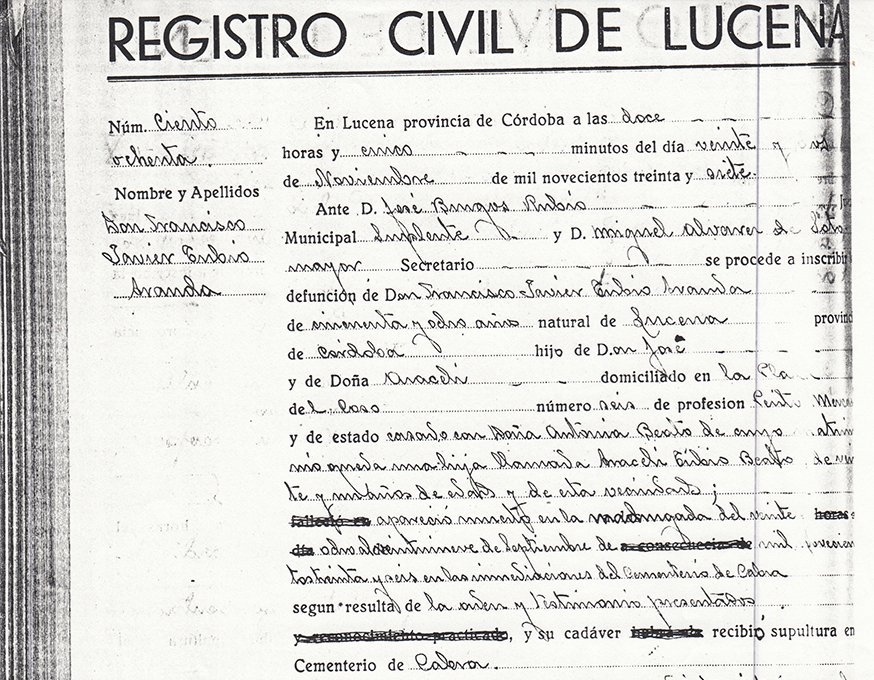 REGISTRO CIVIL DE LUCENA
Núm. Ciento
ochenta.
Nombre y Apellidos
Don Francisco
Javier Tubio
Aranda
En Lucena provincia de Córdoba a las doce
horas y cinco minutos del día veinte y
de Noviembre de mil novecientos treinta y siete.
Ante D. José Burgos Rubio
Municipal Suplente y D. Miguel Alvarez de
mayor Secretario se procede a inscribi
defunción de Don Francisco Javier Tubio Aranda
de cincuenta y ocho años natural de Lucena provinc
de Córdoba hijo de D.on José
y de Doña Araceli domiciliado en la Pla
del Coso número seis de profesion Perit Merca
y de estado casado con Doña Antonia Beato de cuyo atrim
nio queda una hija llamada Araceli Tubio Beato de vin
te y un años de edad y de esta vecindad;
falleció en apareció muerto en la madrugada del veinte horas
día ocho al veintinueve de Septiembre de a consecuencia de mil novecien
tos treinta y seis en las inmediaciones del Cementerio de Cabra
segun resulta de la orden y testimonio presentados
y reconocimiento practicado, y su cadáver habrá de recibió supultura en
Cementerio de Cabra.